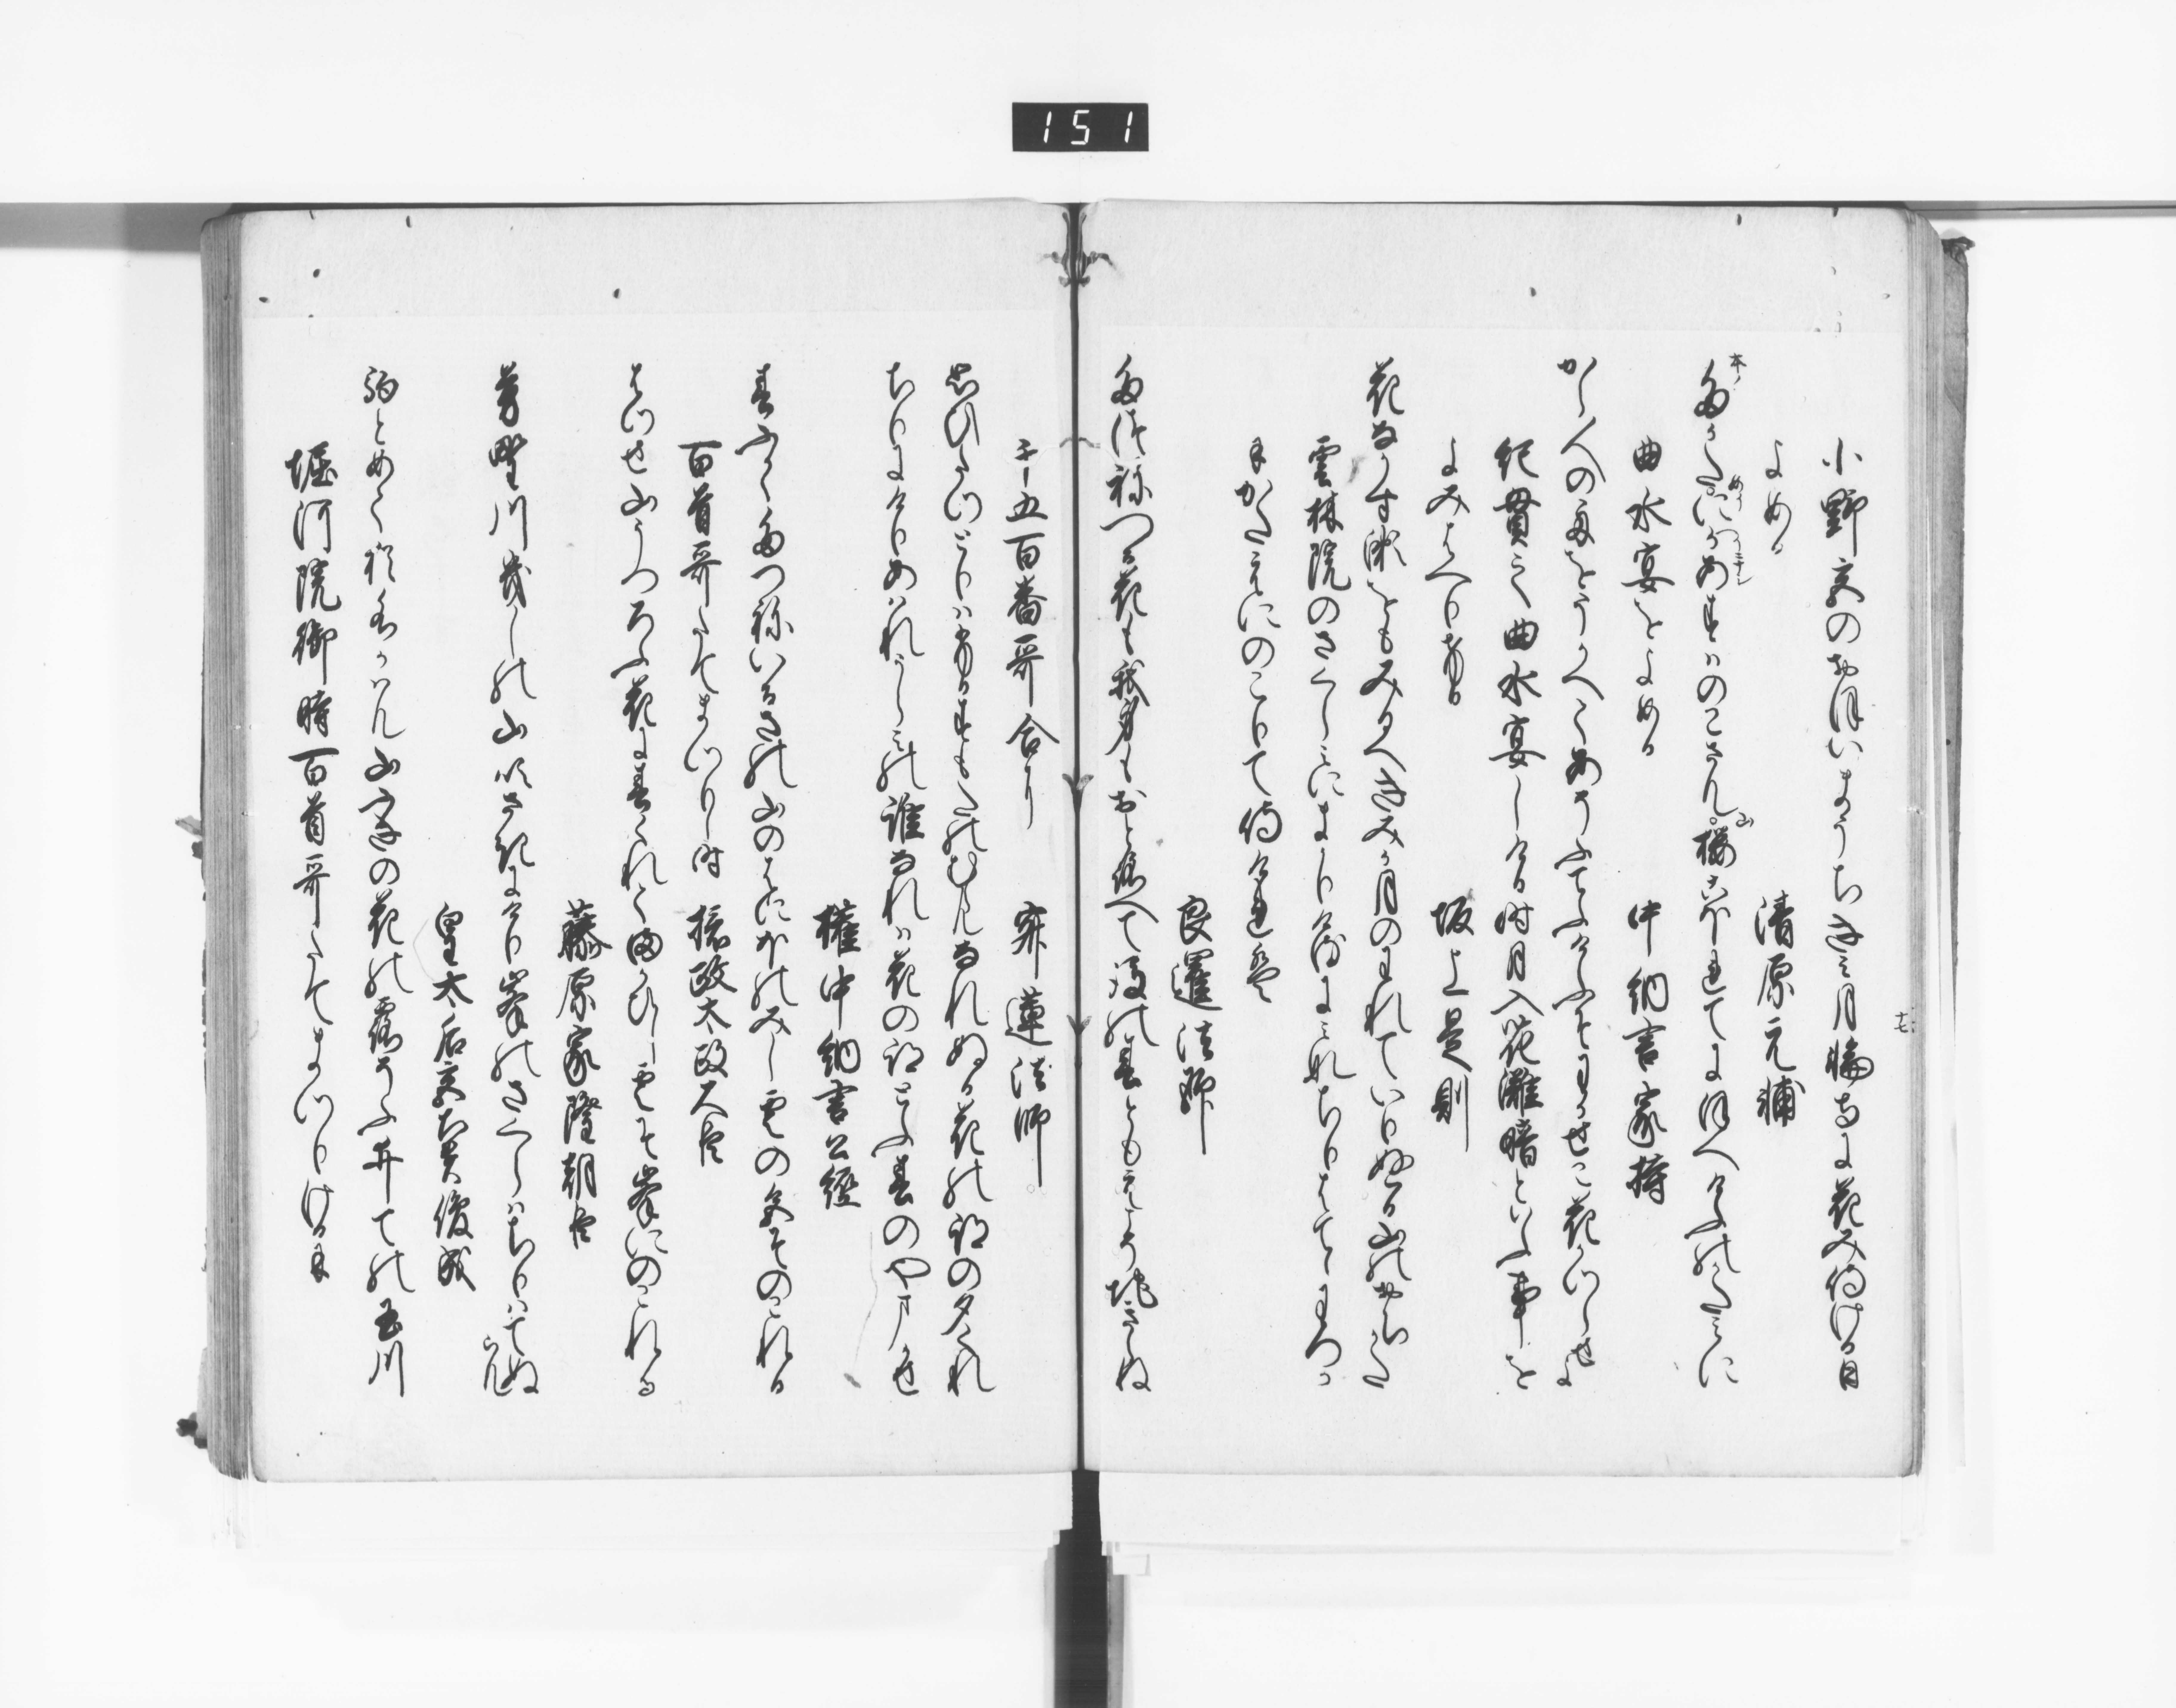 小野宮のおほいまうちきみ月輪寺に花み侍ける日
よめる
清原元輔
たかためにかあすはのこさん山桜こほれてにほへけふのかたみに
曲水宴をよめる
中納言家持
から人の舟をうかへてあそふてふけふそわかせこ花かつらせよ
紀貫之曲水宴し侍ける時月入花灘暗といふ事を
よみはへりける
坂上是則
花なかす瀬をもみるへきみか月のわれていりぬる山のおちかた
雲林院のさくらみにまかりけるにみなちりはてゝわつか
にかたえたにのこりて侍けれは
良暹法師
たつねつる花も我身もおとろへて後の春ともえこそ契らね
千五百番哥合に
寂蓮法師
思ひたつとりはふるすもたのむらんなれぬる花の跡の夕くれ
ちりにけりあはれうらみの誰なれは花の跡とふ春のやまかせ
権中納言公経
春ふかくたつねいるさの山のはにほのみし雲の色そのこれる
百首哥たてまつりし時
摂政太政大臣
はつせ山うつろふ花に春くれてまかひし雲そ峯にのこれる
藤原家隆朝臣
芳野川岸の山吹さきにけり峯のさくらはちりはてぬらん
皇太后宮大夫俊成
駒とめてなを水かはん山吹の花の露そふ井ての玉川
堀河院御時百首哥たてまつりける時
151